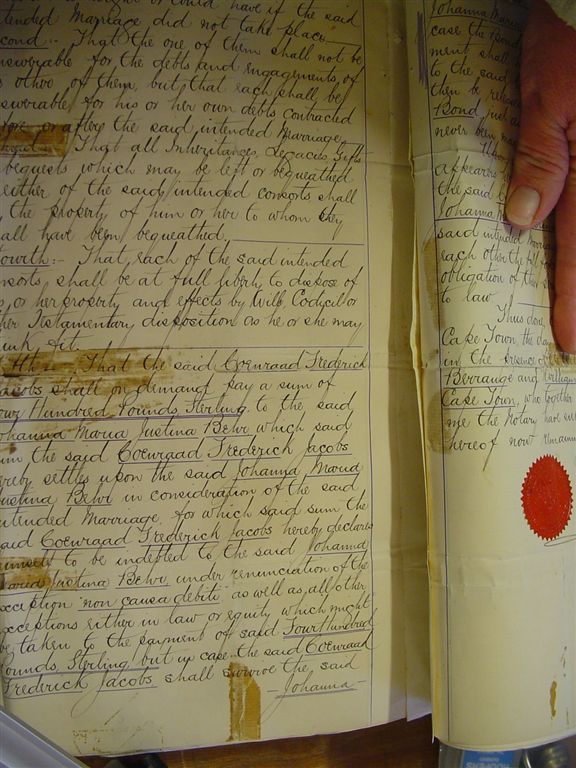 or could have if the said
tended Marriage did not take place
cond:- That the one of them shall not be
nswerable for the debts and engagements of
other of them, but that each shall be
swerable for his or her own debts contracted
fore or after the said intended Marriage.
That all Inheritances, Legacies, Gifts
bequests which may be left or bequeathed
either of the said intended consorts shall
the property of him or her to whom they
all have been bequeathed.
ourth:- That, each of the said intended
nsorts shall be at full liberty to dispose of
or her property and effects by Will, Codicil or
her Testamentary disposition as he or she may
ink fit.
That the said Coenraad Frederick
Jacobs shall on demand pay a sum of
our Hundred Pounds Sterling to the said
ohanna Maria Justina Behr which said
um, the said Coenraad Frederick Jacobs
ereby settles upon the said Johanna Maria
Justina Behr in consideration of the said
ntended Marriage, for which said sum the
aid Coenraad Frederick Jacobs hereby declares
imself to be indebted to the said Johanna
Maria Justina Behr, under renunciation of the
xception "non causa debiti" as well as all other
xceptions either in law or equity which might
be taken to the payment of said Four Hundred
Pounds, Sterling, but in case the said Coenraad
Frederick Jacobs shall survive the said
- Johanna -
Johanna Maria
case the Bond
ment shall
to, the said
then be
Bond, just as
never been
appearers
the said
Johanna M
said intended Marria
each other the
obligation of
to law.
Thus done
Cape Town, the day
in the presence of
Berrange and William
Cape Town, who together
me the Notary have su
hereof now remainin